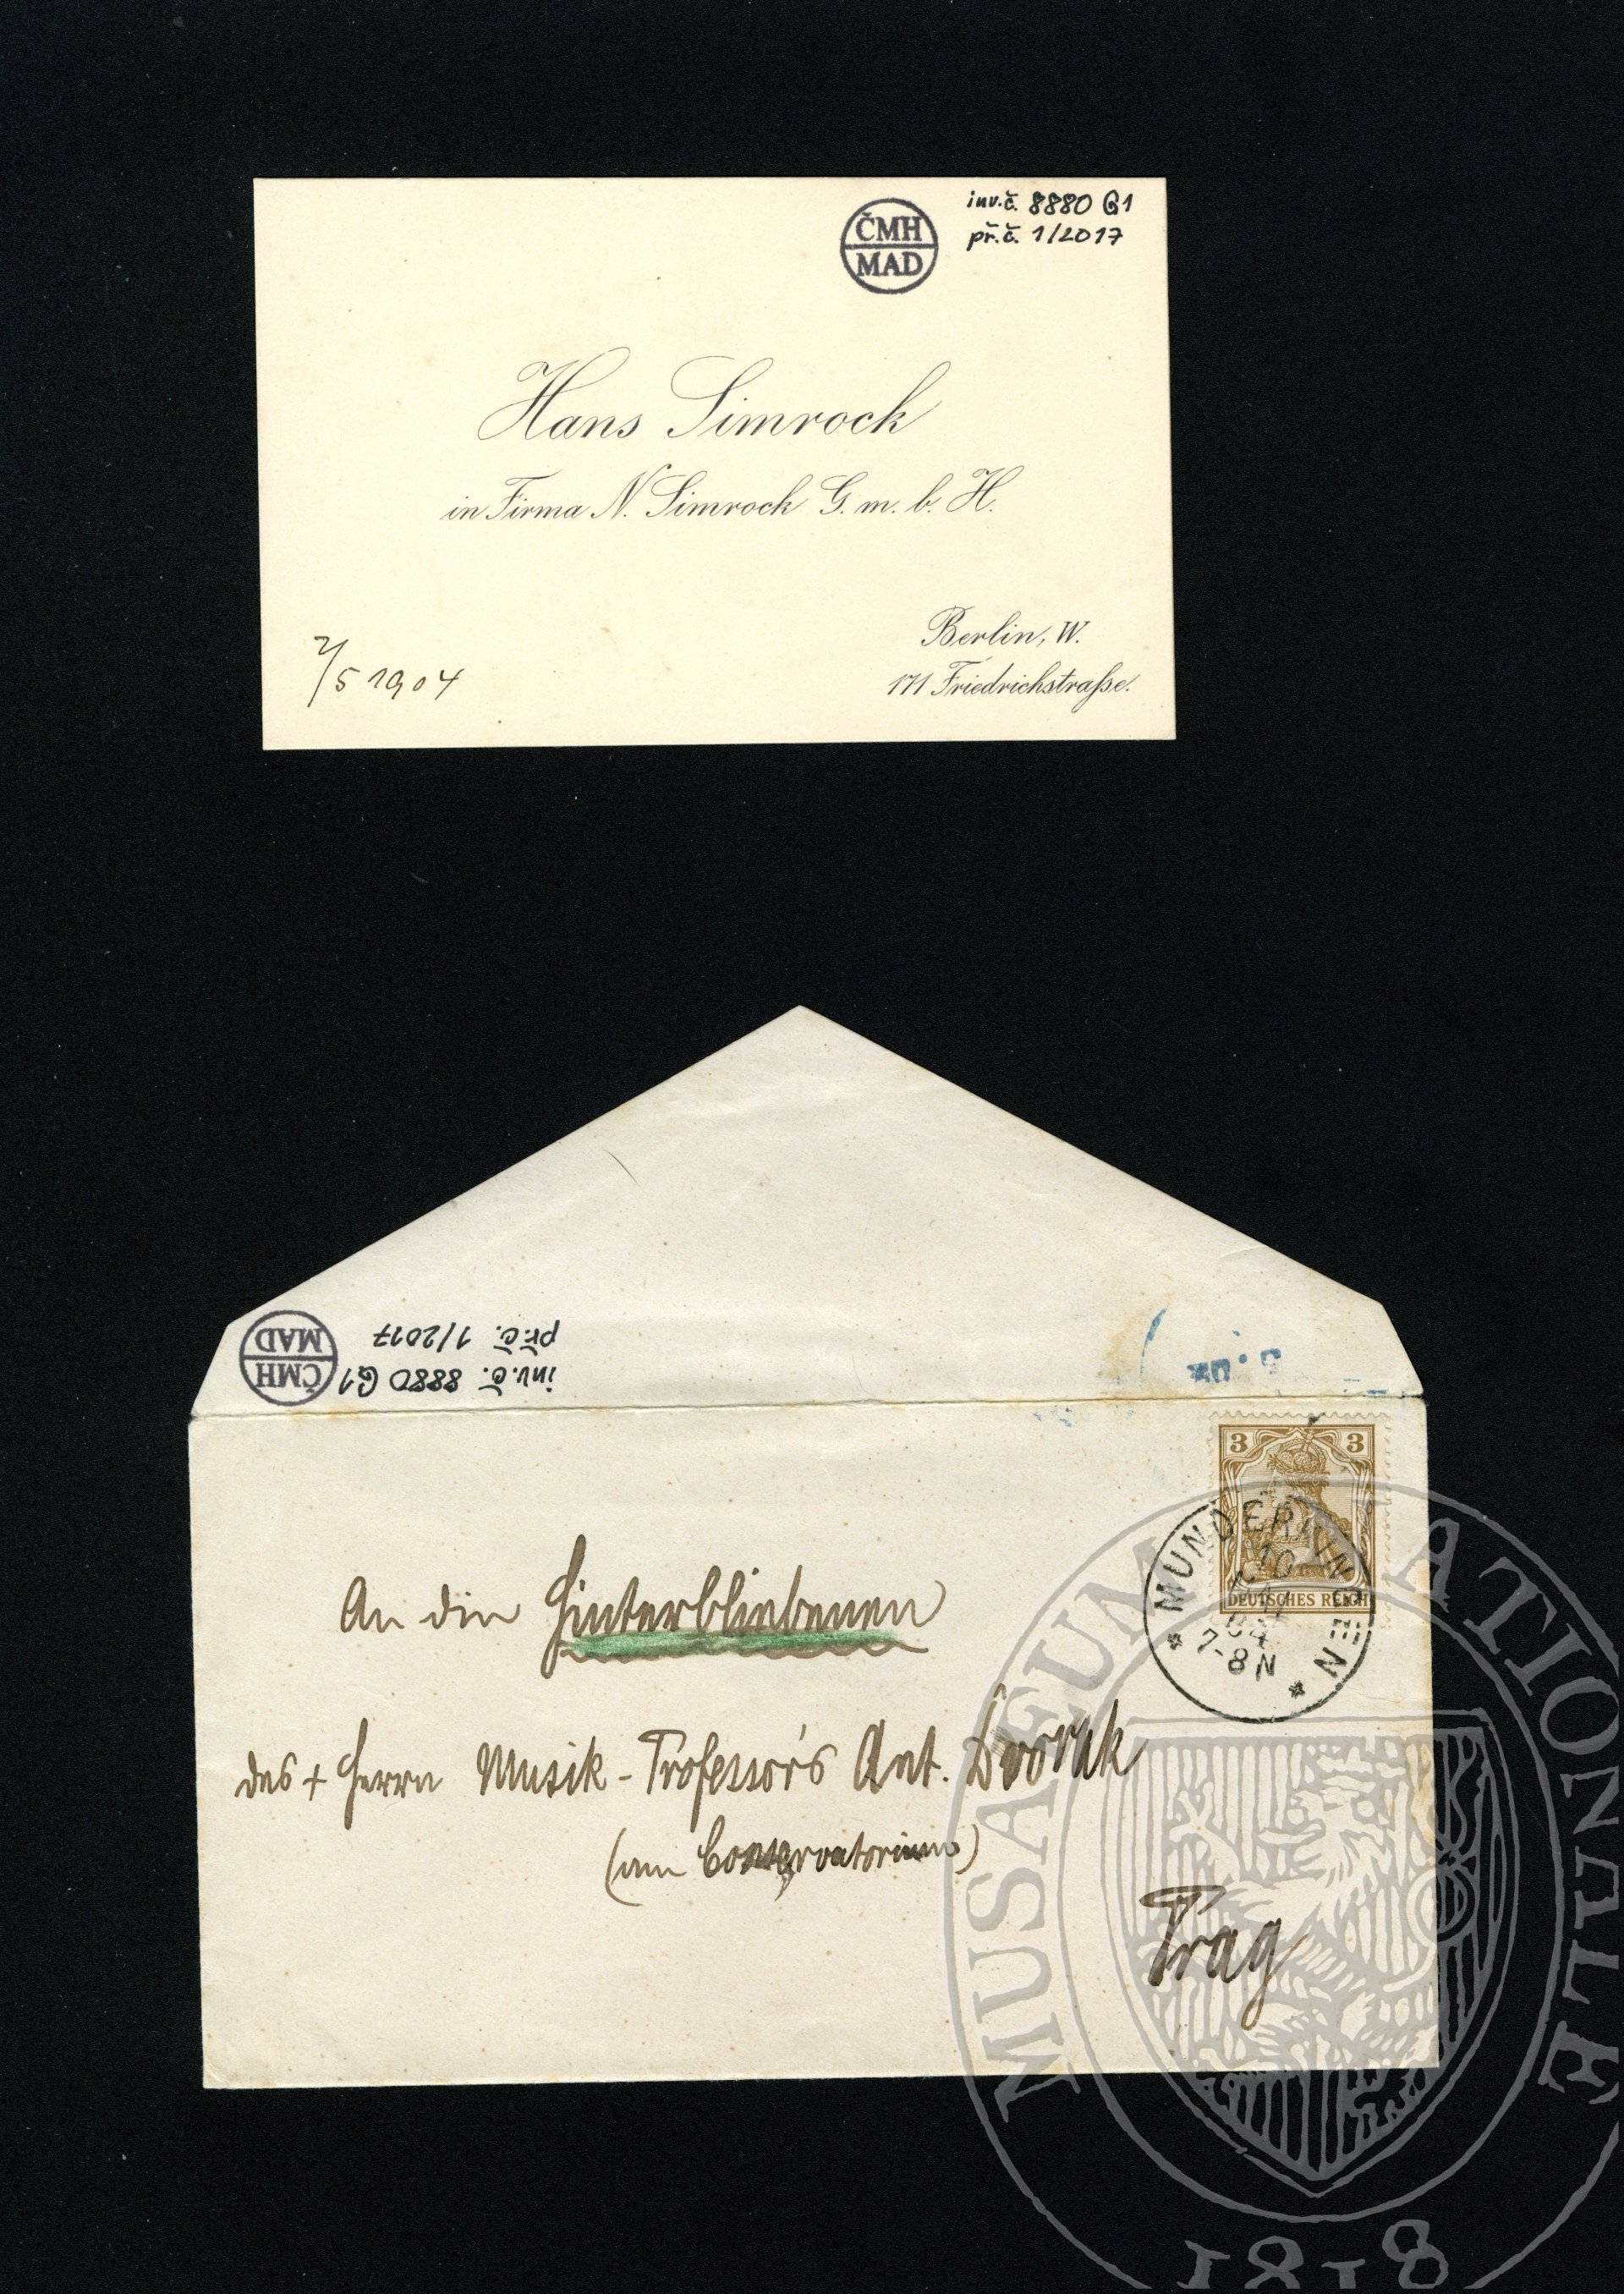 inv.č. 8880 G1
př.č. 1/2017
ČMH
MAD
Hans Simrock
in Firma N. Simrock G. m. b. H.
Berlin, W.
171 Friedrichstraße.
7/5 1904
inv.č. 8880 G1
př.č. 1/2017
ČMH
MAD
3 3
DEUTSCHES REICH
* MUNDERKINGEN *
10
MAI
04
7-8N
An die Hinterbliebenen
des + Herrn Musik-Professor's Ant. Dvorak
(am Conservatorium)
Prag
MUSAEUM NATIONALE
1818